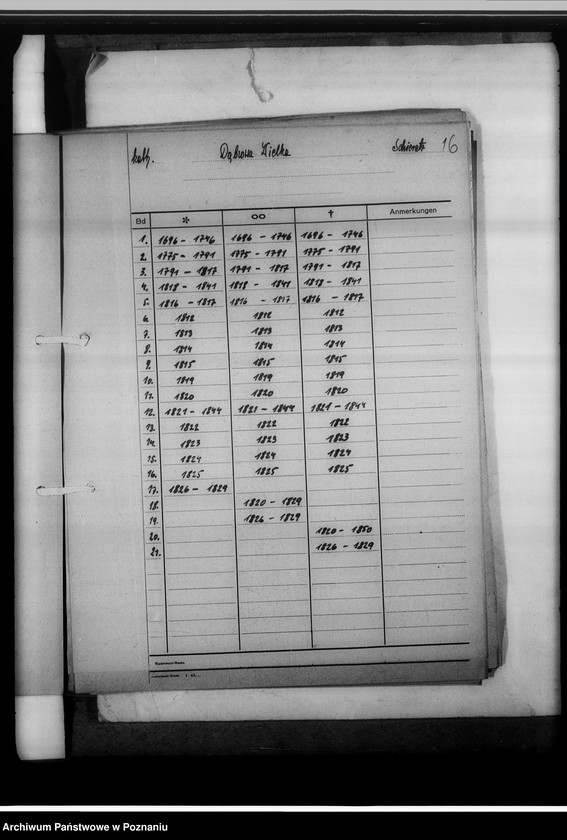 kath. Dąbrowa Wielka Schieratz 16
Bd * oo † Anmerkungen
1. 1696 - 1746 1696 - 1746 1696 - 1746
2. 1775 - 1791 1775 - 1791 1775 - 1791
3. 1791 - 1817 1791 - 1817 1791 - 1817
4. 1818 - 1841 1818 - 1841 1818 - 1841
5. 1816 - 1817 1816 - 1817 1816 - 1817
6. 1812 1812 1812
7. 1813 1813 1813
8. 1814 1814 1814
9. 1815 1815 1815
10. 1819 1819 1819
11. 1820 1820 1820
12. 1821 - 1844 1821 - 1844 1821 - 1844
13. 1822 1822 1822
14. 1823 1823 1823
15. 1824 1824 1824
16. 1825 1825 1825
17. 1826 - 1829
18. 1820 - 1829
19. 1826 - 1829
20. 1820 - 1850
21. 1826 - 1829
Archiwum Państwowe w Poznaniu